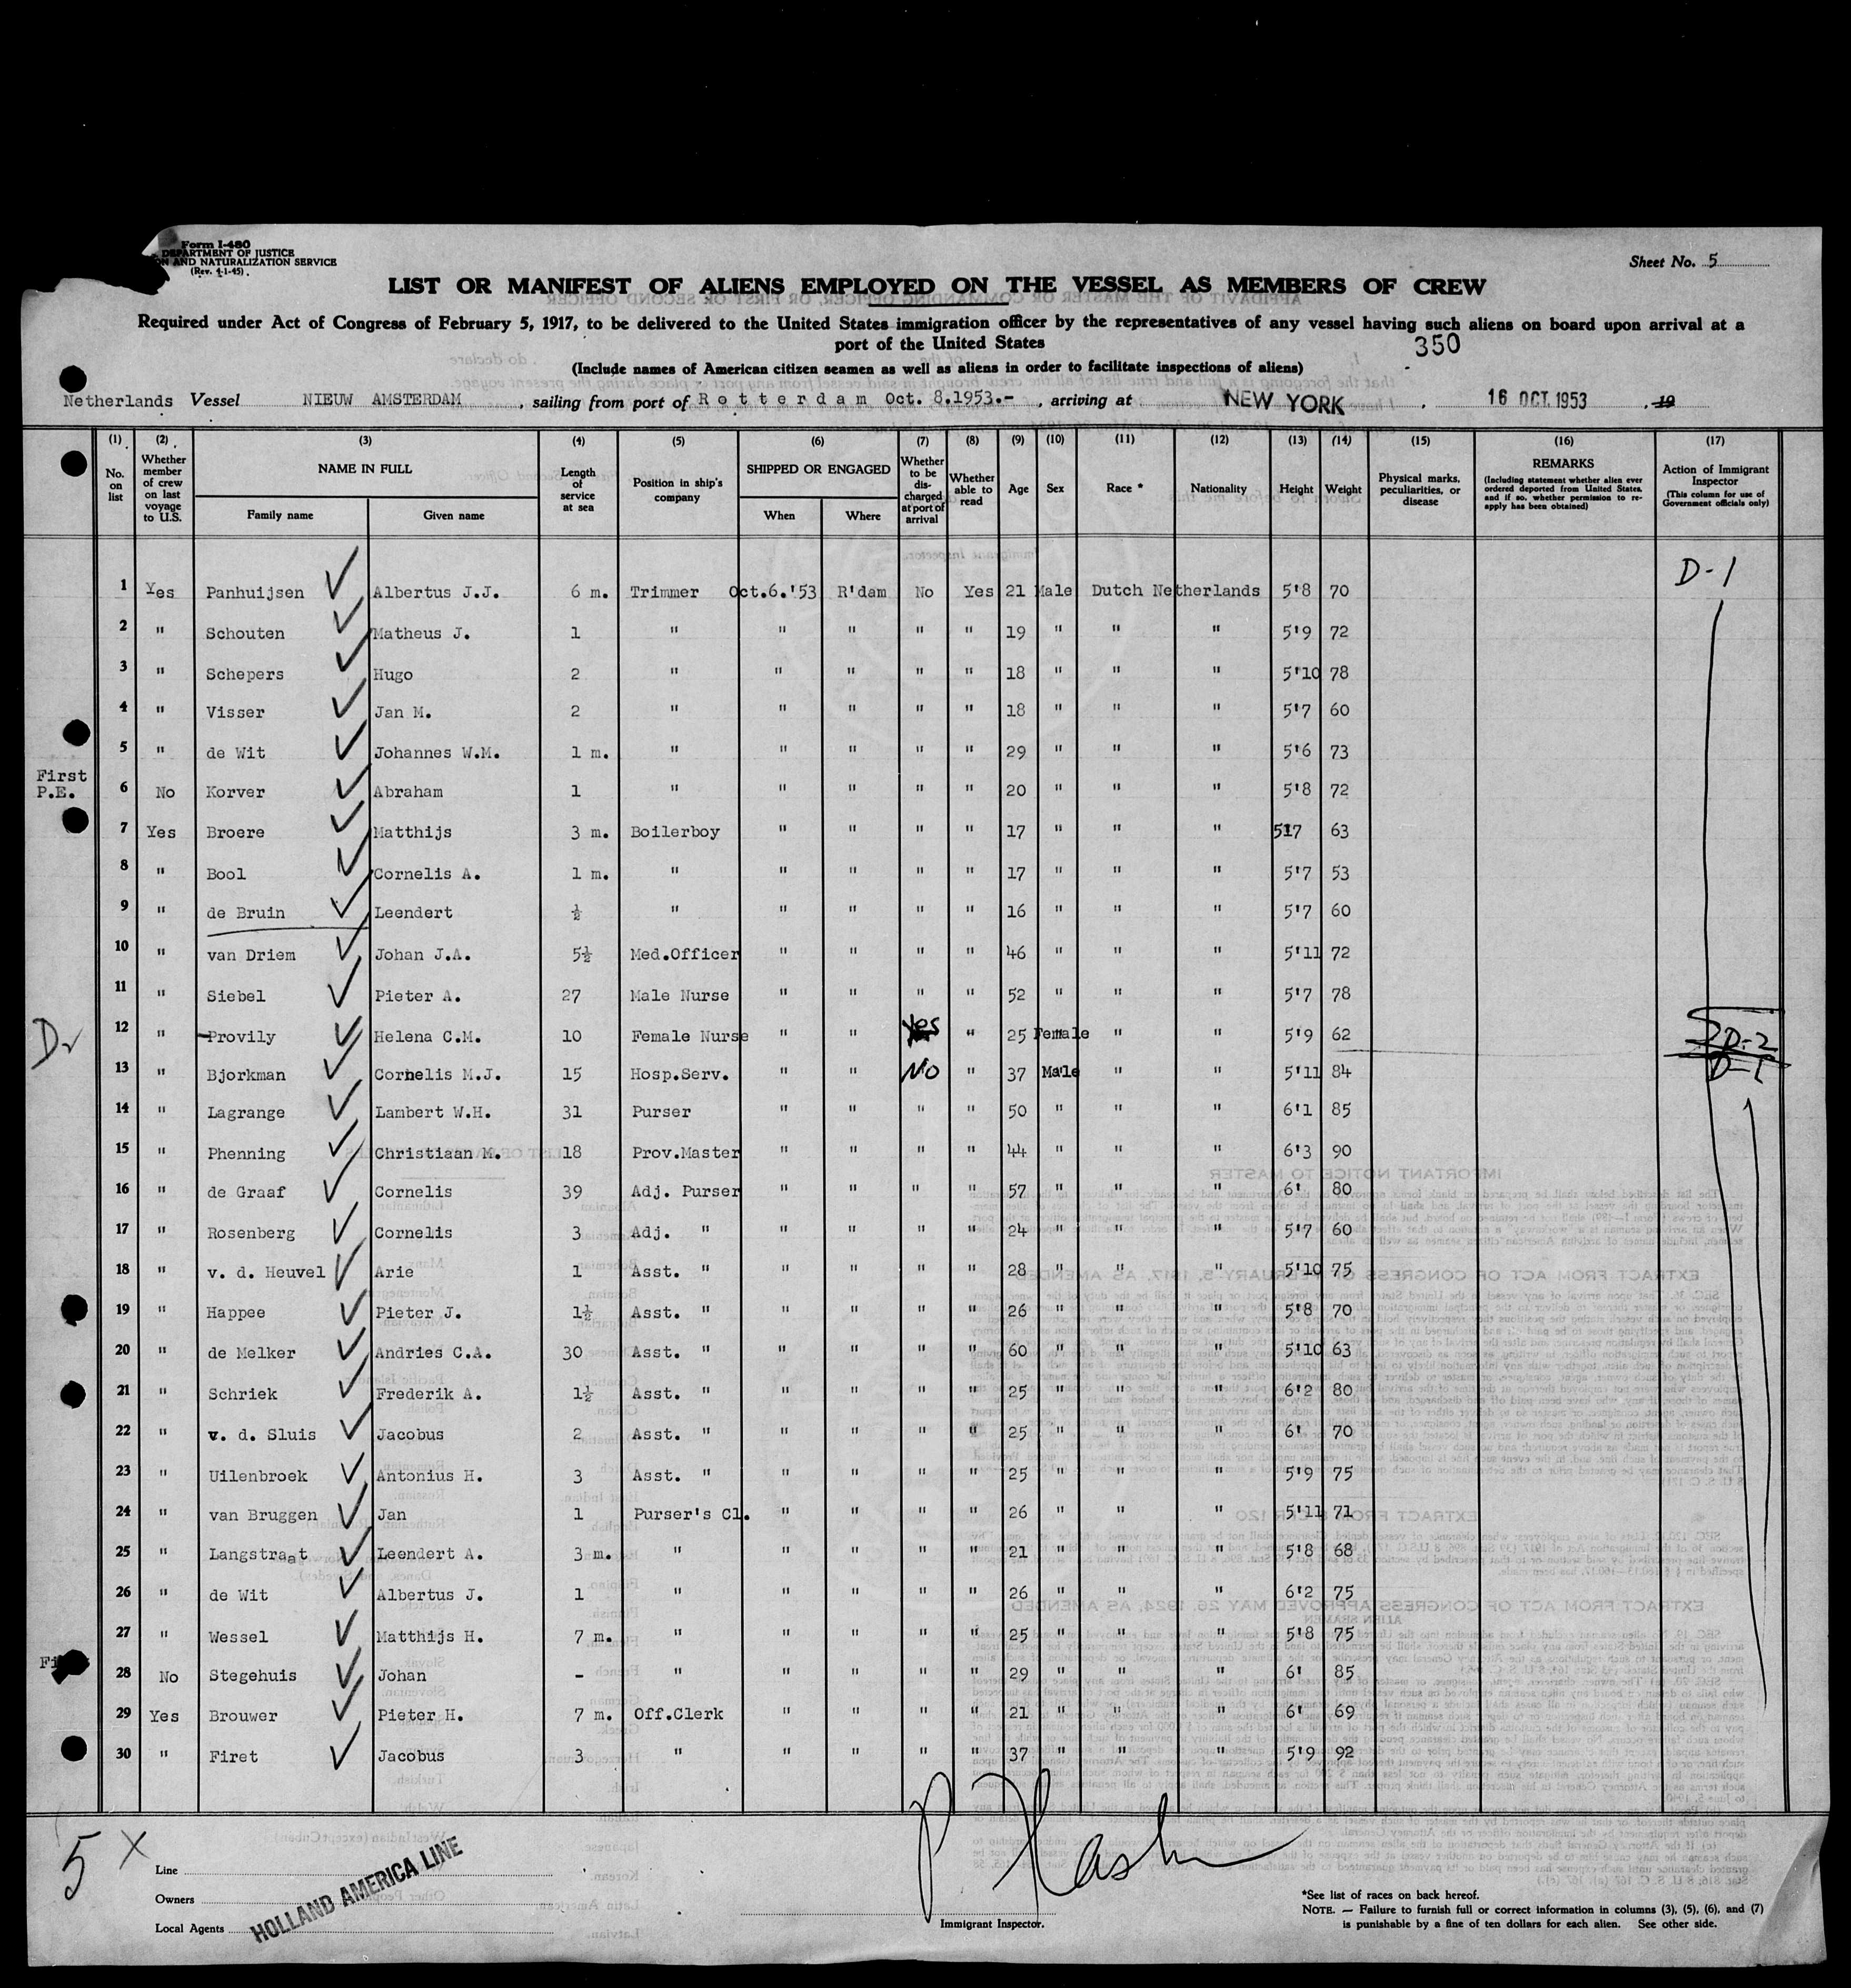 Form I-480
DEPARTMENT OF JUSTICE
AND NATURALIZATION SERVICE
(Rev. 4-1-45)
Sheet No. 5
LIST OR MANIFEST OF ALIENS EMPLOYED ON THE VESSEL AS MEMBERS OF CREW
Required under Act of Congress of February 5, 1917, to be delivered to the United States immigration officer by the representatives of any vessel having such aliens on board upon arrival at a
port of the United States
350
(Include names of American citizen seamen as well as aliens in order to facilitate inspections of aliens)
Netherlands Vessel NIEUW AMSTERDAM, sailing from port of Rotterdam Oct. 8.1953.-, arriving at NEW YORK, 16 OCT 1953, 19
(1) (2) (3) (4) (5) (6) (7) (8) (9) (10) (11) (12) (13) (14) (15) (16) (17)
No. on list
Whether member of crew on last voyage to U.S.
NAME IN FULL
Family name
Given name
Length of service at sea
Position in ship's company
SHIPPED OR ENGAGED
When
Where
Whether to be discharged at port of arrival
Whether able to read
Age
Sex
Race *
Nationality
Height
Weight
Physical marks, peculiarities, or disease
REMARKS
(Including statement whether alien ever ordered deported from United States, and if so, whether permission to reapply has been obtained)
Action of Immigrant Inspector
(This column for use of Government officials only)
D-1
1 Yes Panhuijsen Albertus J.J. 6 m. Trimmer Oct.6.'53 R'dam No Yes 21 Male Dutch Netherlands 5'8 70
2 " Schouten Matheus J. 1 " " " " " 19 " " " 5'9 72
3 " Schepers Hugo 2 " " " " " 18 " " " 5'10 78
4 " Visser Jan M. 2 " " " " " 18 " " " 5'7 60
5 " de Wit Johannes W.M. 1 m. " " " " " 29 " " " 5'6 73
First P.E. 6 No Korver Abraham 1 " " " " " 20 " " " 5'8 72
7 Yes Broere Matthijs 3 m. Boilerboy " " " " 17 " " " 5'7 63
8 " Bool Cornelis A. 1 m. " " " " " 17 " " " 5'7 53
9 " de Bruin Leendert ½ " " " " " 16 " " " 5'7 60
10 " van Driem Johan J.A. 5½ Med.Officer " " " " 46 " " " 5'11 72
11 " Siebel Pieter A. 27 Male Nurse " " " " 52 " " " 5'7 78
12 " Provily Helena C.M. 10 Female Nurse " " Yes " 25 Female " " 5'9 62 D-2
13 " Bjorkman Cornelis M.J. 15 Hosp.Serv. " " No " 37 Male " " 5'11 84 D-1
14 " Lagrange Lambert W.H. 31 Purser " " " " 50 " " " 6'1 85
15 " Phenning Christiaan M. 18 Prov.Master " " " " 44 " " " 6'3 90
16 " de Graaf Cornelis 39 Adj. Purser " " " " 57 " " " 6' 80
17 " Rosenberg Cornelis 3 Adj. " " " " " 24 " " " 5'7 60
18 " v. d. Heuvel Arie 1 Asst. " " " " " 28 " " " 5'10 75
19 " Happee Pieter J. 1½ Asst. " " " " " 26 " " " 5'8 70
20 " de Melker Andries C.A. 30 Asst. " " " " " 60 " " " 5'10 63
21 " Schriek Frederik A. 1½ Asst. " " " " " 25 " " " 6'2 80
22 " v. d. Sluis Jacobus 2 Asst. " " " " " 25 " " " 6' 70
23 " Uilenbroek Antonius H. 3 Asst. " " " " " 25 " " " 5'9 75
24 " van Bruggen Jan 1 Purser's Cl. " " " " 26 " " " 5'11 71
25 " Langstraat Leendert A. 3 m. " " " " " 21 " " " 5'8 68
26 " de Wit Albertus J. 1 " " " " " 26 " " " 6'2 75
27 " Wessel Matthijs H. 7 m. " " " " " 25 " " " 5'8 75
28 No Stegehuis Johan - " " " " " 29 " " " 6' 85
29 Yes Brouwer Pieter H. 7 m. Off.Clerk " " " " 21 " " " 6' 69
30 " Firet Jacobus 3 " " " " " 37 " " " 5'9 92
5 X
Line
Owners
Local Agents
HOLLAND AMERICA LINE
Immigrant Inspector.
*See list of races on back hereof.
NOTE. — Failure to furnish full or correct information in columns (3), (5), (6), and (7)
is punishable by a fine of ten dollars for each alien. See other side.